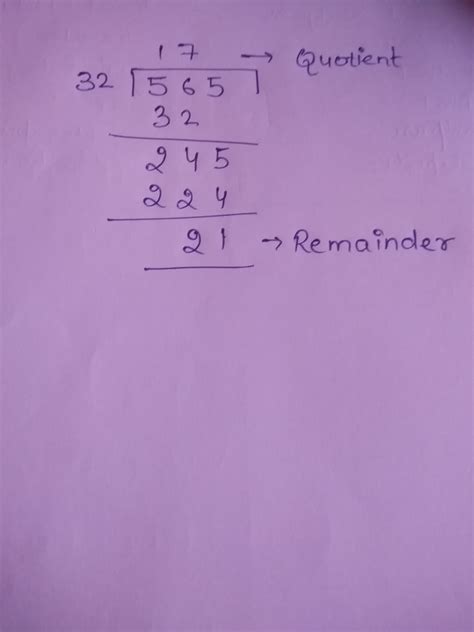 17 → Quotient
32 565
32
245
224
21 → Remainder